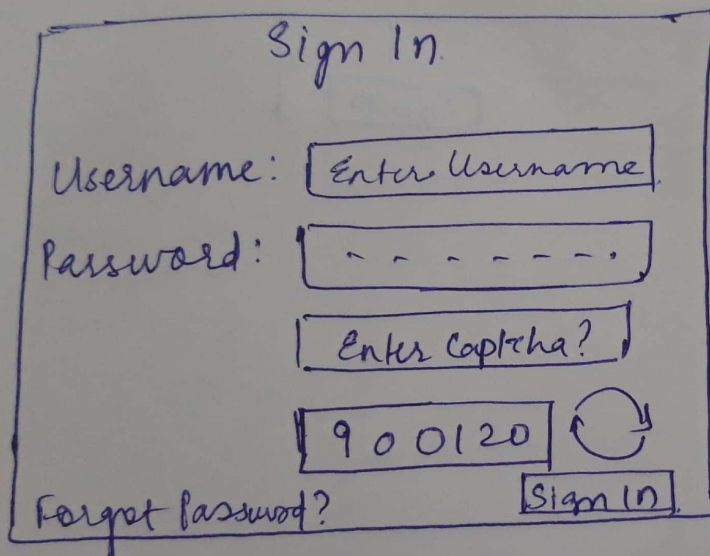 Sign In
Username: Enter Username
Password: - - - - - - -
Enter Captcha?
900120
Forgot Password? Sign In